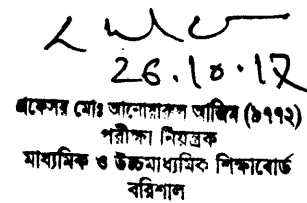 26.10.17
প্রফেসর মোঃ আনোয়ারুল আজিম (৯৭৭২)
পরীক্ষা নিয়ন্ত্রক
মাধ্যমিক ও উচ্চমাধ্যমিক শিক্ষাবোর্ড
বরিশাল